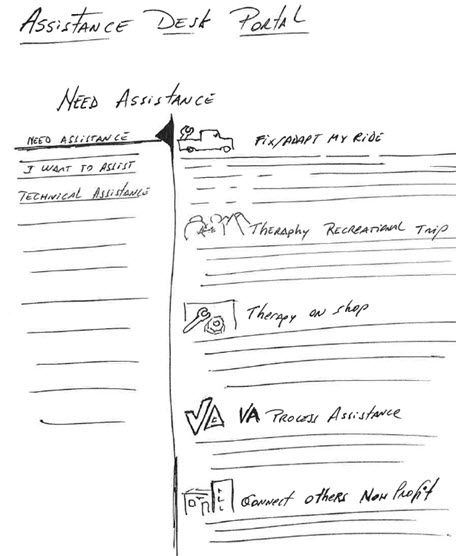 Assistance Desk Portal
Need Assistance
Need Assistance
I Want to Assist
Technical Assistance
Fix/Adapt My Ride
Theraphy Recreational Trip
Therapy on shop
VA VA Process Assistance
Connect Others Non Profit